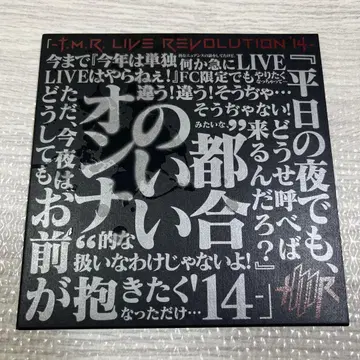 -T.M.R. LIVE REVOLUTION '14-
今まで『今年は単独
LIVEはやらねぇ!』
何か急にLIVE
FC限定でもやりたく
なっちゃって…
違う!違う!そうぢゃ…
そうぢゃない!
みたいな、
『平日の夜でも、
どうせ呼べば
来るんだろ?』
“都合
のいい
オンナ”
的な
扱いなわけじゃないよ!
ただ、今夜は、
どうしても
お前
が抱きたく'14-
なっただけ…
TMR